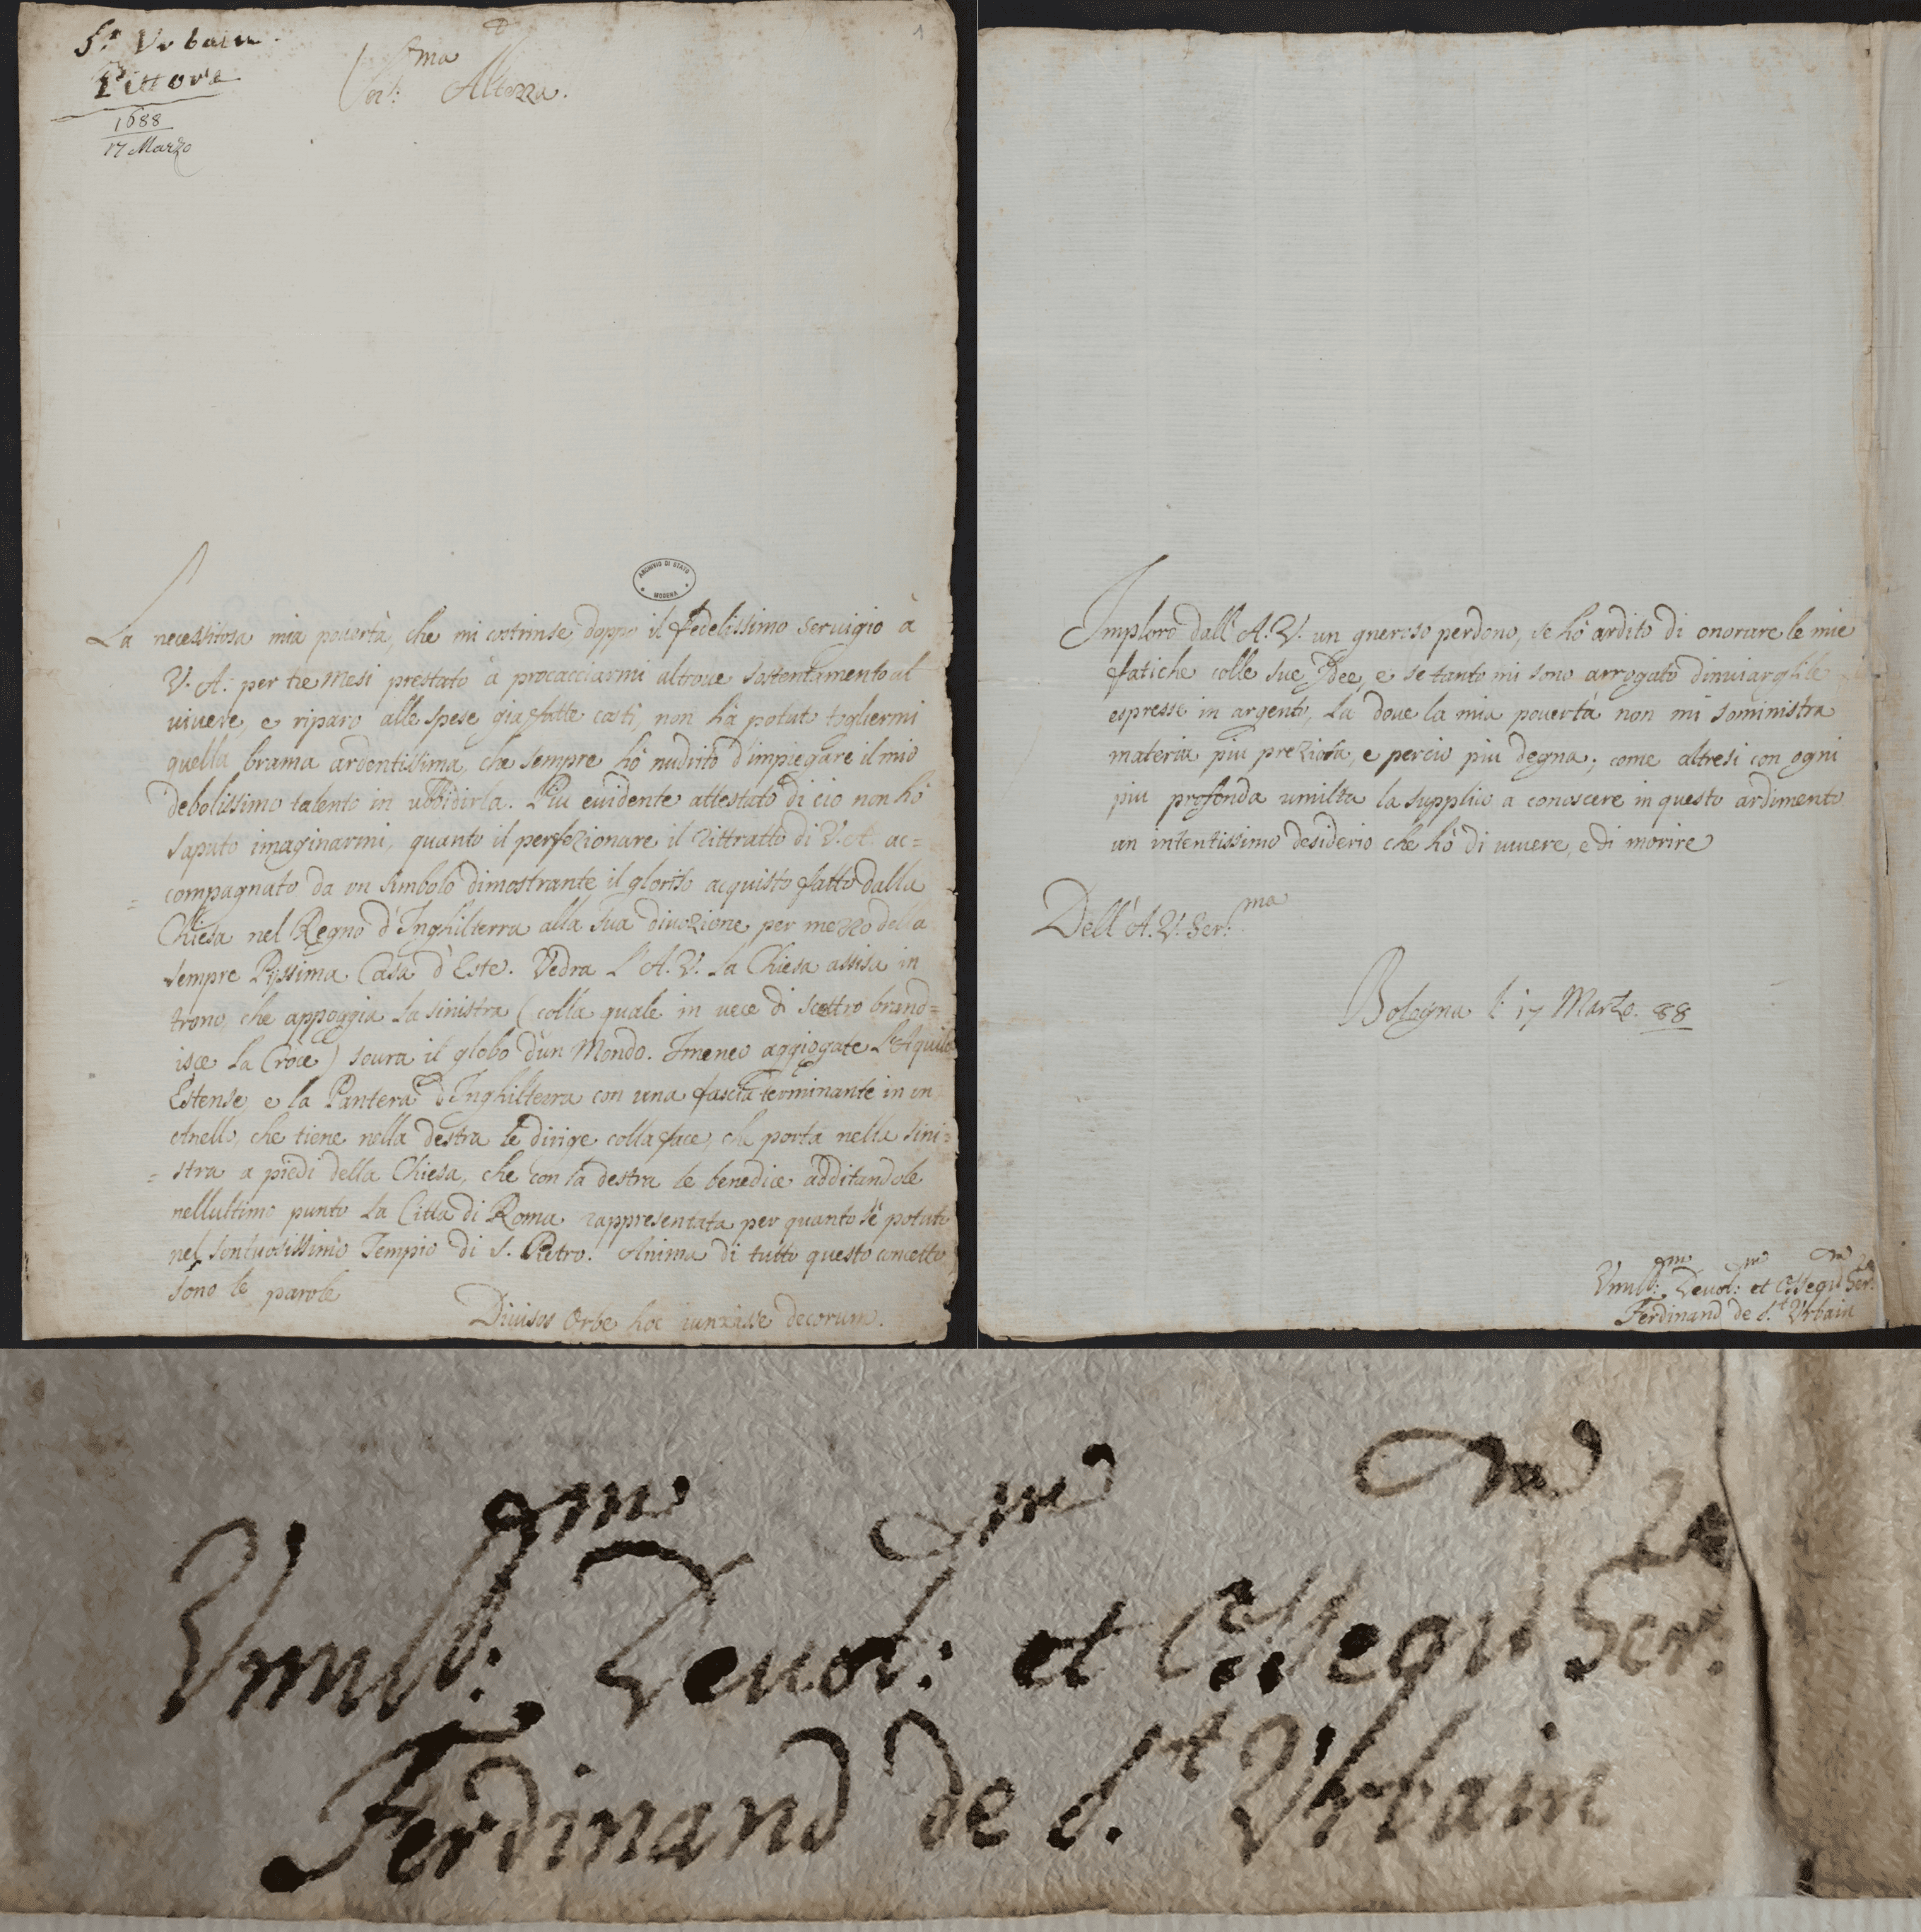 S.t Urbain.
Pittore
1688
17 Marzo
1
Ser:ma Altezza.
ARCHIVIO DI STATO
MODENA
La necessitosa mia pouertà, che mi costrinse doppo il fedelissimo seruigio à
V. A. per tre mesi prestato à procacciarmi altroue sostentamento al
uiuere, e riparo alle spese gia fatte costì, non hà potuto togliermi
quella brama ardentissima, che sempre hò nudrito d'impiegare il mio
debolissimo talento in ubbidirla. Piu euidente attestato di cio non hò
saputo imaginarmi, quanto il perfezionare il rittratto di V. A. ac=
=compagnato da un simbolo dimostrante il glorioso acquisto fatto dalla
Chiesa nel Regno d'Inghilterra alla sua diuozione, per mezzo della
sempre Pijssima Casa d'Este. Vedra l'A. V. la Chiesa assisa in
trono, che appoggia la sinistra (colla quale in uece di scettro brand=
isce la Croce) soura il globo d'un Mondo. Imeneo aggiogate l'Aquila
Estense, e la Pantera d'Inghilterra con una fascia terminante in un
Anello, che tiene nella destra le dirige colla face, che porta nella sini=
=stra a piedi della Chiesa, che con la destra le benedice additandole
nell'ultimo punto la Città di Roma rappresentata per quanto s'è potuto
nel sontuosissimo Tempio di S. Pietro. Anima di tutto questo concetto
sono le parole
Diuisos Orbe hoc iunxisse decorum.
Imploro dall'A. V. un gneroso perdono, se hò ardito di onorare le mie
fatiche colle sue Idee, e se tanto mi sono arrogato d'inuiarghile
espresse in argento, la doue la mia pouertà non mi soministra
materia piu preziosa, e percio piu degna; come altresi con ogni
piu profonda umilta la supplico a conoscere in questo ardimento
un intentissimo desiderio che hò di uiuere, e di morire
Dell'A. V. Ser:ma
Bologna li 17 Marzo. 88
Vmil:mo Deuot:mo et Ossequ:mo Ser:re
Ferdinand de S.t Vrbain
Vmil:mo Deuot:mo et Ossequ:mo Ser:re
Ferdinand de S.t Vrbain